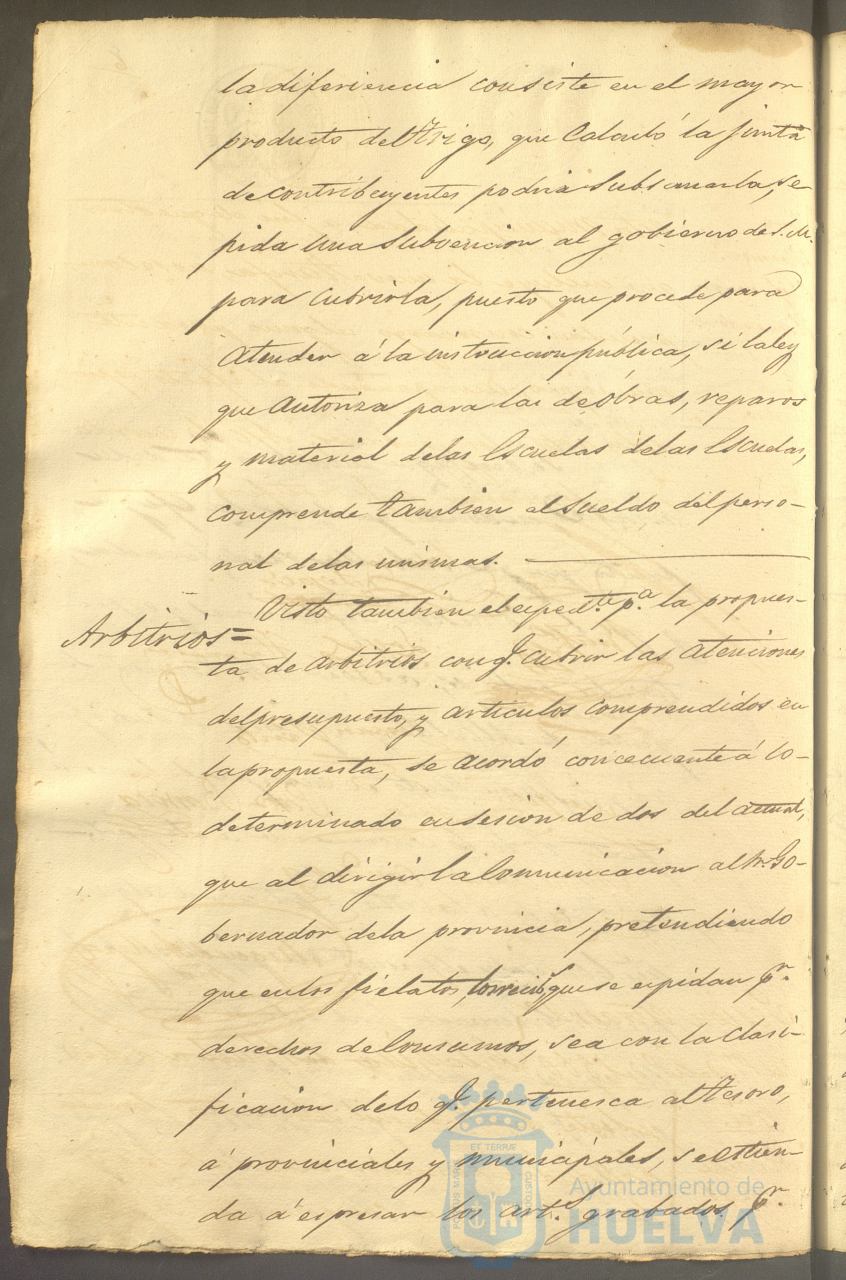 la diferiencia consiste en el mayor
producto del trigo, que Calculó la junta
de contribuyentes podria subsanarla, se
pida una subvencion al gobierno de S. M.
para cubrirla, puesto que procede para
atender á la instruccion pública, si la ley
que autoriza para las de óbras, reparos
y material de las Escuelas de las Escuelas,
comprende tambien el sueldo del perso-
nal de las mismas.
Arbitrios=
Visto tambien el espedte. pa. la propues-
ta de arbitrios con q. cubrir las atenciones
del presupuesto, y articulos comprendidos en
la propuesta, se acordó concecuente á lo
determinado en sesion de dos del actual,
que al dirigir la Comunicacion al Sr. Go-
bernador de la provincia, pretendiendo
que en los fielatos, que se espidan pr.
derechos de Consumos, sea con la clasi-
ficacion de lo q. pertenesca al Tesoro,
á provinciales y municipales, se estien-
da á espresar los arts. grabados, pr.
PORTUS MARIS ET TERRAE CUSTODIA
Ayuntamiento de
HUELVA